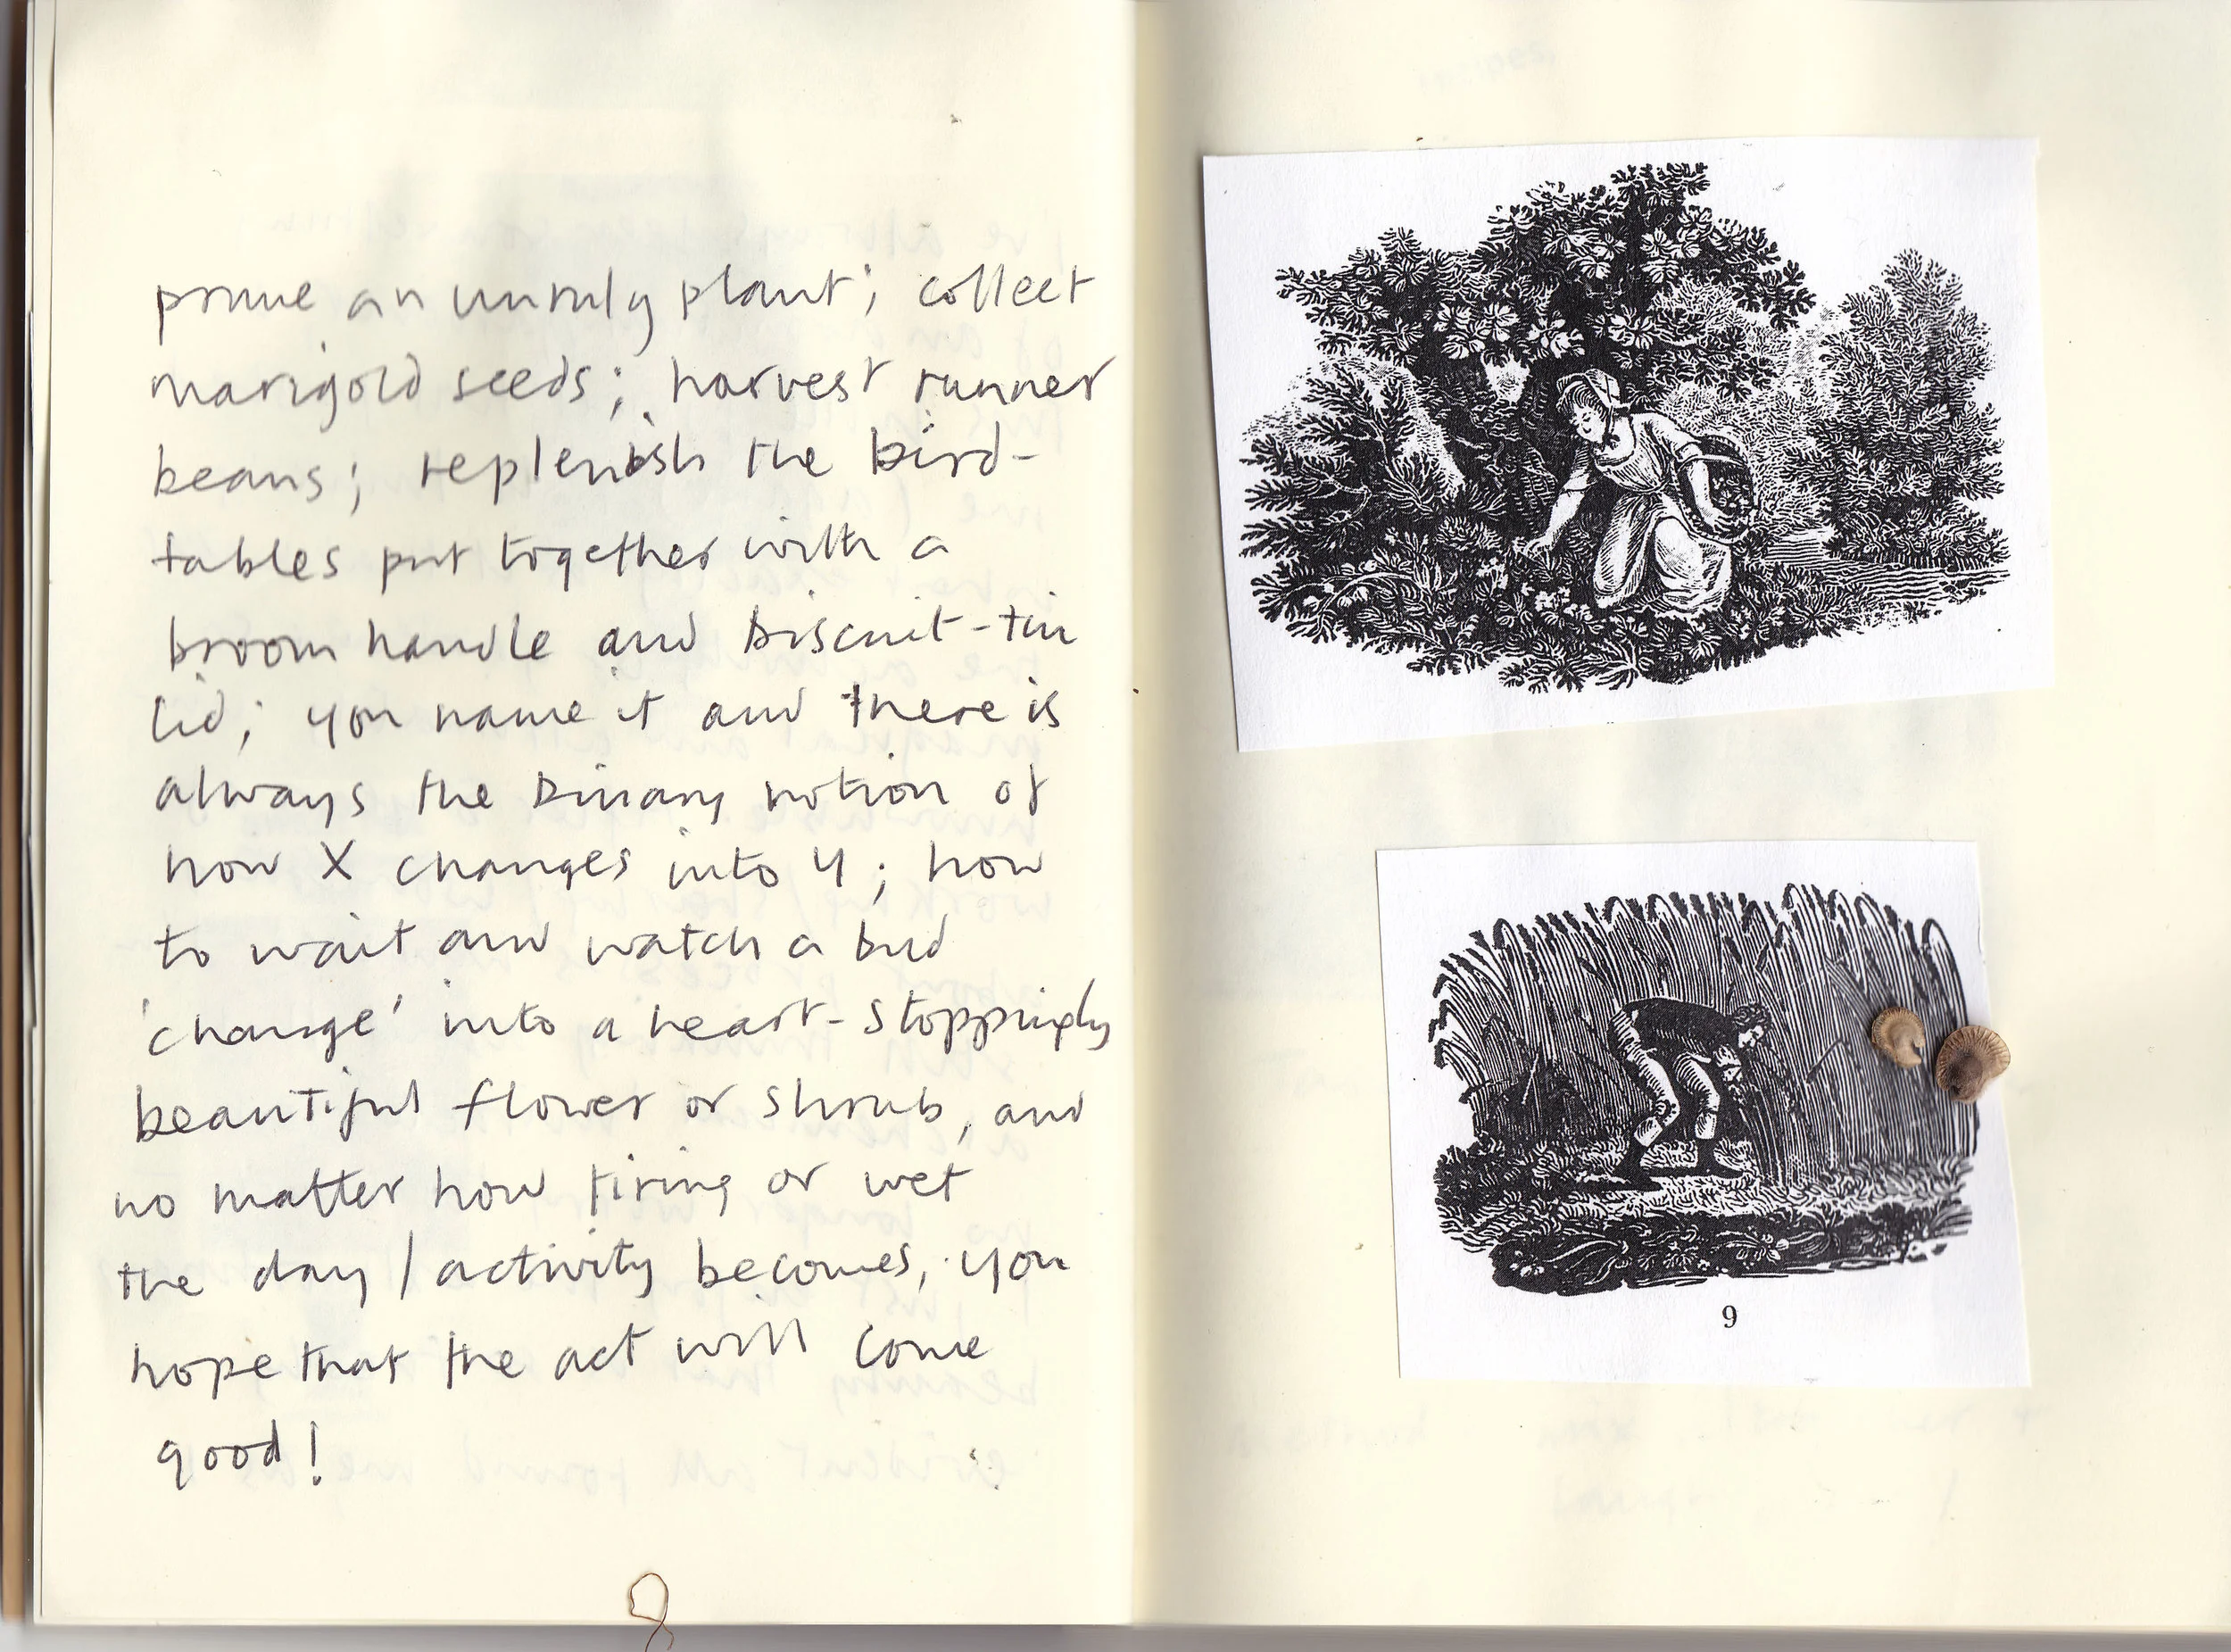 prune an unruly plant; collect
marigold seeds; harvest runner
beans; replenish the bird-
tables put together with a
broom handle and biscuit-tin
lid; you name it and there is
always the binary notion of
how X changes into Y; how
to wait and watch a bud
'change' into a heart-stoppingly
beautiful flower or shrub, and
no matter how tiring or wet
the day / activity becomes, you
hope that the act will come
good!
9